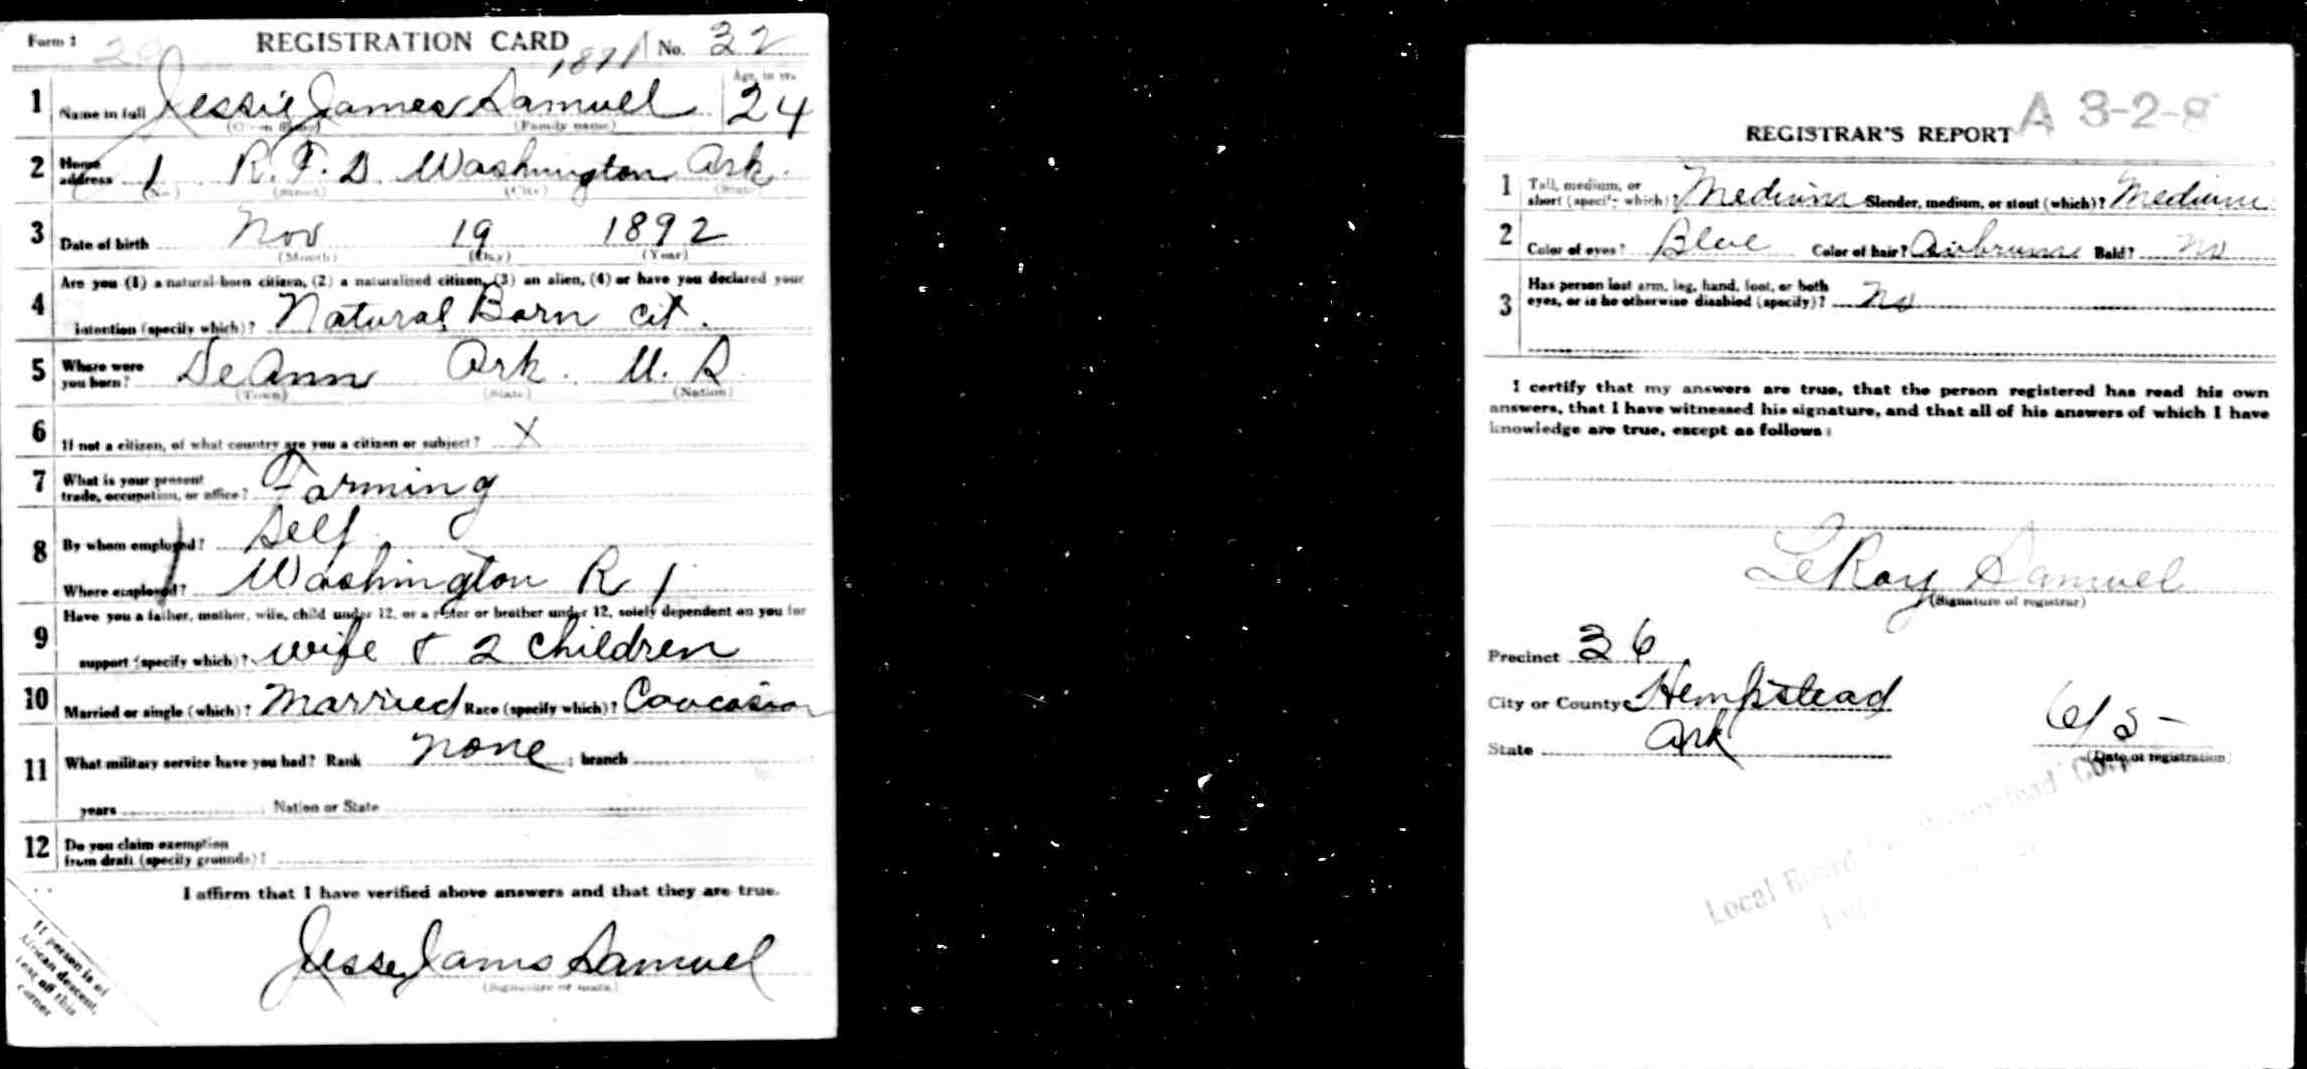 Form 1 REGISTRATION CARD No. 32
1871
1 Name in full Jessie James Samuel Age, in yrs. 24
(Given name) (Family name)
2 Home address 1 R. F. D. Washington Ark.
(No.) (Street) (City) (State)
3 Date of birth Nov 19 1892
(Month) (Day) (Year)
4 Are you (1) a natural-born citizen, (2) a naturalized citizen, (3) an alien, (4) or have you declared your
intention (specify which)? Natural Born cit.
5 Where were you born? DeAnn Ark. U. S
(Town) (State) (Nation)
6 If not a citizen, of what country are you a citizen or subject? X
7 What is your present trade, occupation, or office? Farming
8 By whom employed? Self
Where employed? Washington R 1
9 Have you a father, mother, wife, child under 12, or a sister or brother under 12, solely dependent on you for
support (specify which)? wife & 2 children
10 Married or single (which)? Married Race (specify which)? Caucasian
11 What military service have you had? Rank none ; branch
years Nation or State
12 Do you claim exemption from draft (specify grounds)?
I affirm that I have verified above answers and that they are true.
Jesse Jams Samuel
(Signature or mark)
If person is of
African descent,
tear off this
corner
A 3-2-8
REGISTRAR'S REPORT
1 Tall, medium, or short (specify which)? Medium Slender, medium, or stout (which)? Medium
2 Color of eyes? Blue Color of hair? Bald? No
3 Has person lost arm, leg, hand, foot, or both
eyes, or is he otherwise disabled (specify)? No
I certify that my answers are true, that the person registered has read his own
answers, that I have witnessed his signature, and that all of his answers of which I have
knowledge are true, except as follows:
LeRoy Samuel
(Signature of registrar)
Precinct 36
City or County Hempstead
State Ark
6/5-
(Date of registration)
Local Board